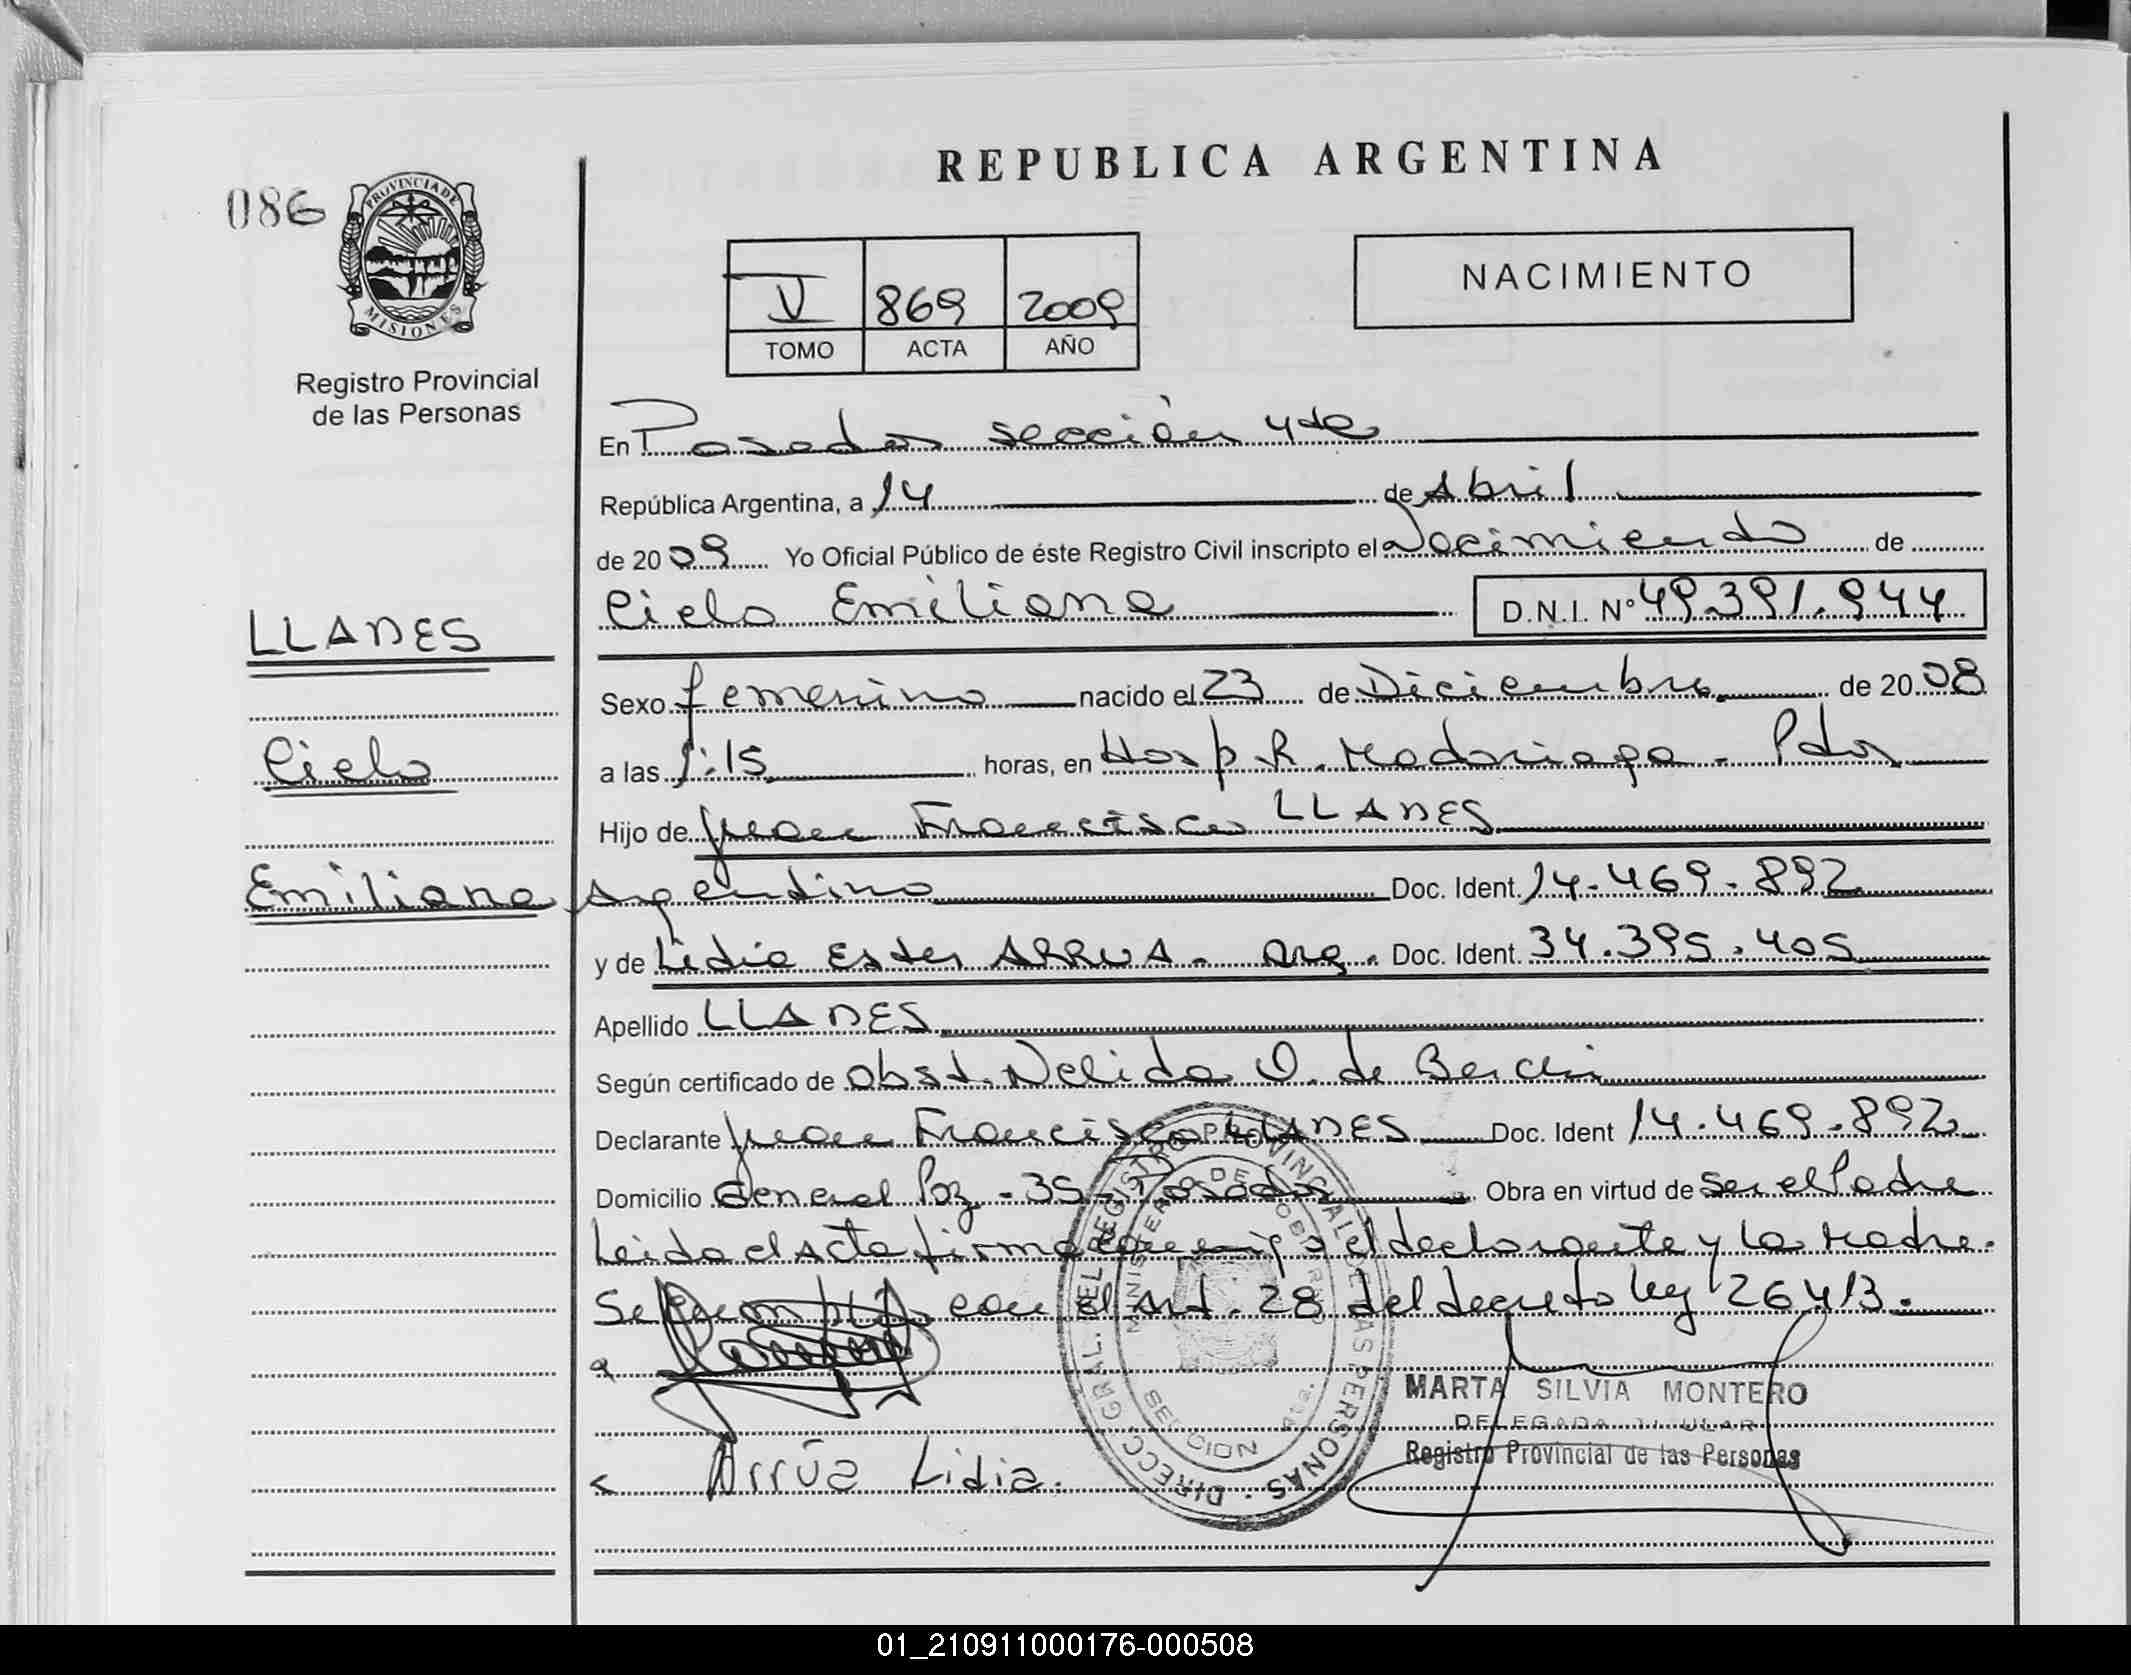 REPUBLICA ARGENTINA
086
PROVINCIA DE
MISIONES
Registro Provincial
de las Personas
V 869 2009
TOMO ACTA AÑO
NACIMIENTO
En Posadas sección 4ta
República Argentina, a 14 de Abril
de 2009 Yo Oficial Público de éste Registro Civil inscripto el Nacimiento de
Cielo Emiliana D.N.I. Nº 49.391.944
LLANES
Cielo
Emiliana
Sexo femenino nacido el 23 de Diciembre de 2008
a las 1:15 horas, en Hosp. R. Madariaga - Pdas
Hijo de Juan Francisco LLANES
Argentino Doc. Ident. 14.469.892
y de Lidia Ester ARRUA. Arg. Doc. Ident. 34.395.405
Apellido LLANES
Según certificado de obst. Nelida O. de
Declarante Juan Francisco LLANES Doc. Ident 14.469.892
Domicilio General Paz - 35 - Posadas Obra en virtud de ser el Padre
Leida el Acta firma conmigo el declarante y la Madre.
Se cumplió con el Art. 28 del decreto ley 26413.
DIRECC. GRAL. DEL REGISTRO PROVINCIAL DE LAS PERSONAS
MARTA SILVIA MONTERO
DELEGADA TITULAR
Registro Provincial de las Personas
Arrúa Lidia.
01_210911000176-000508